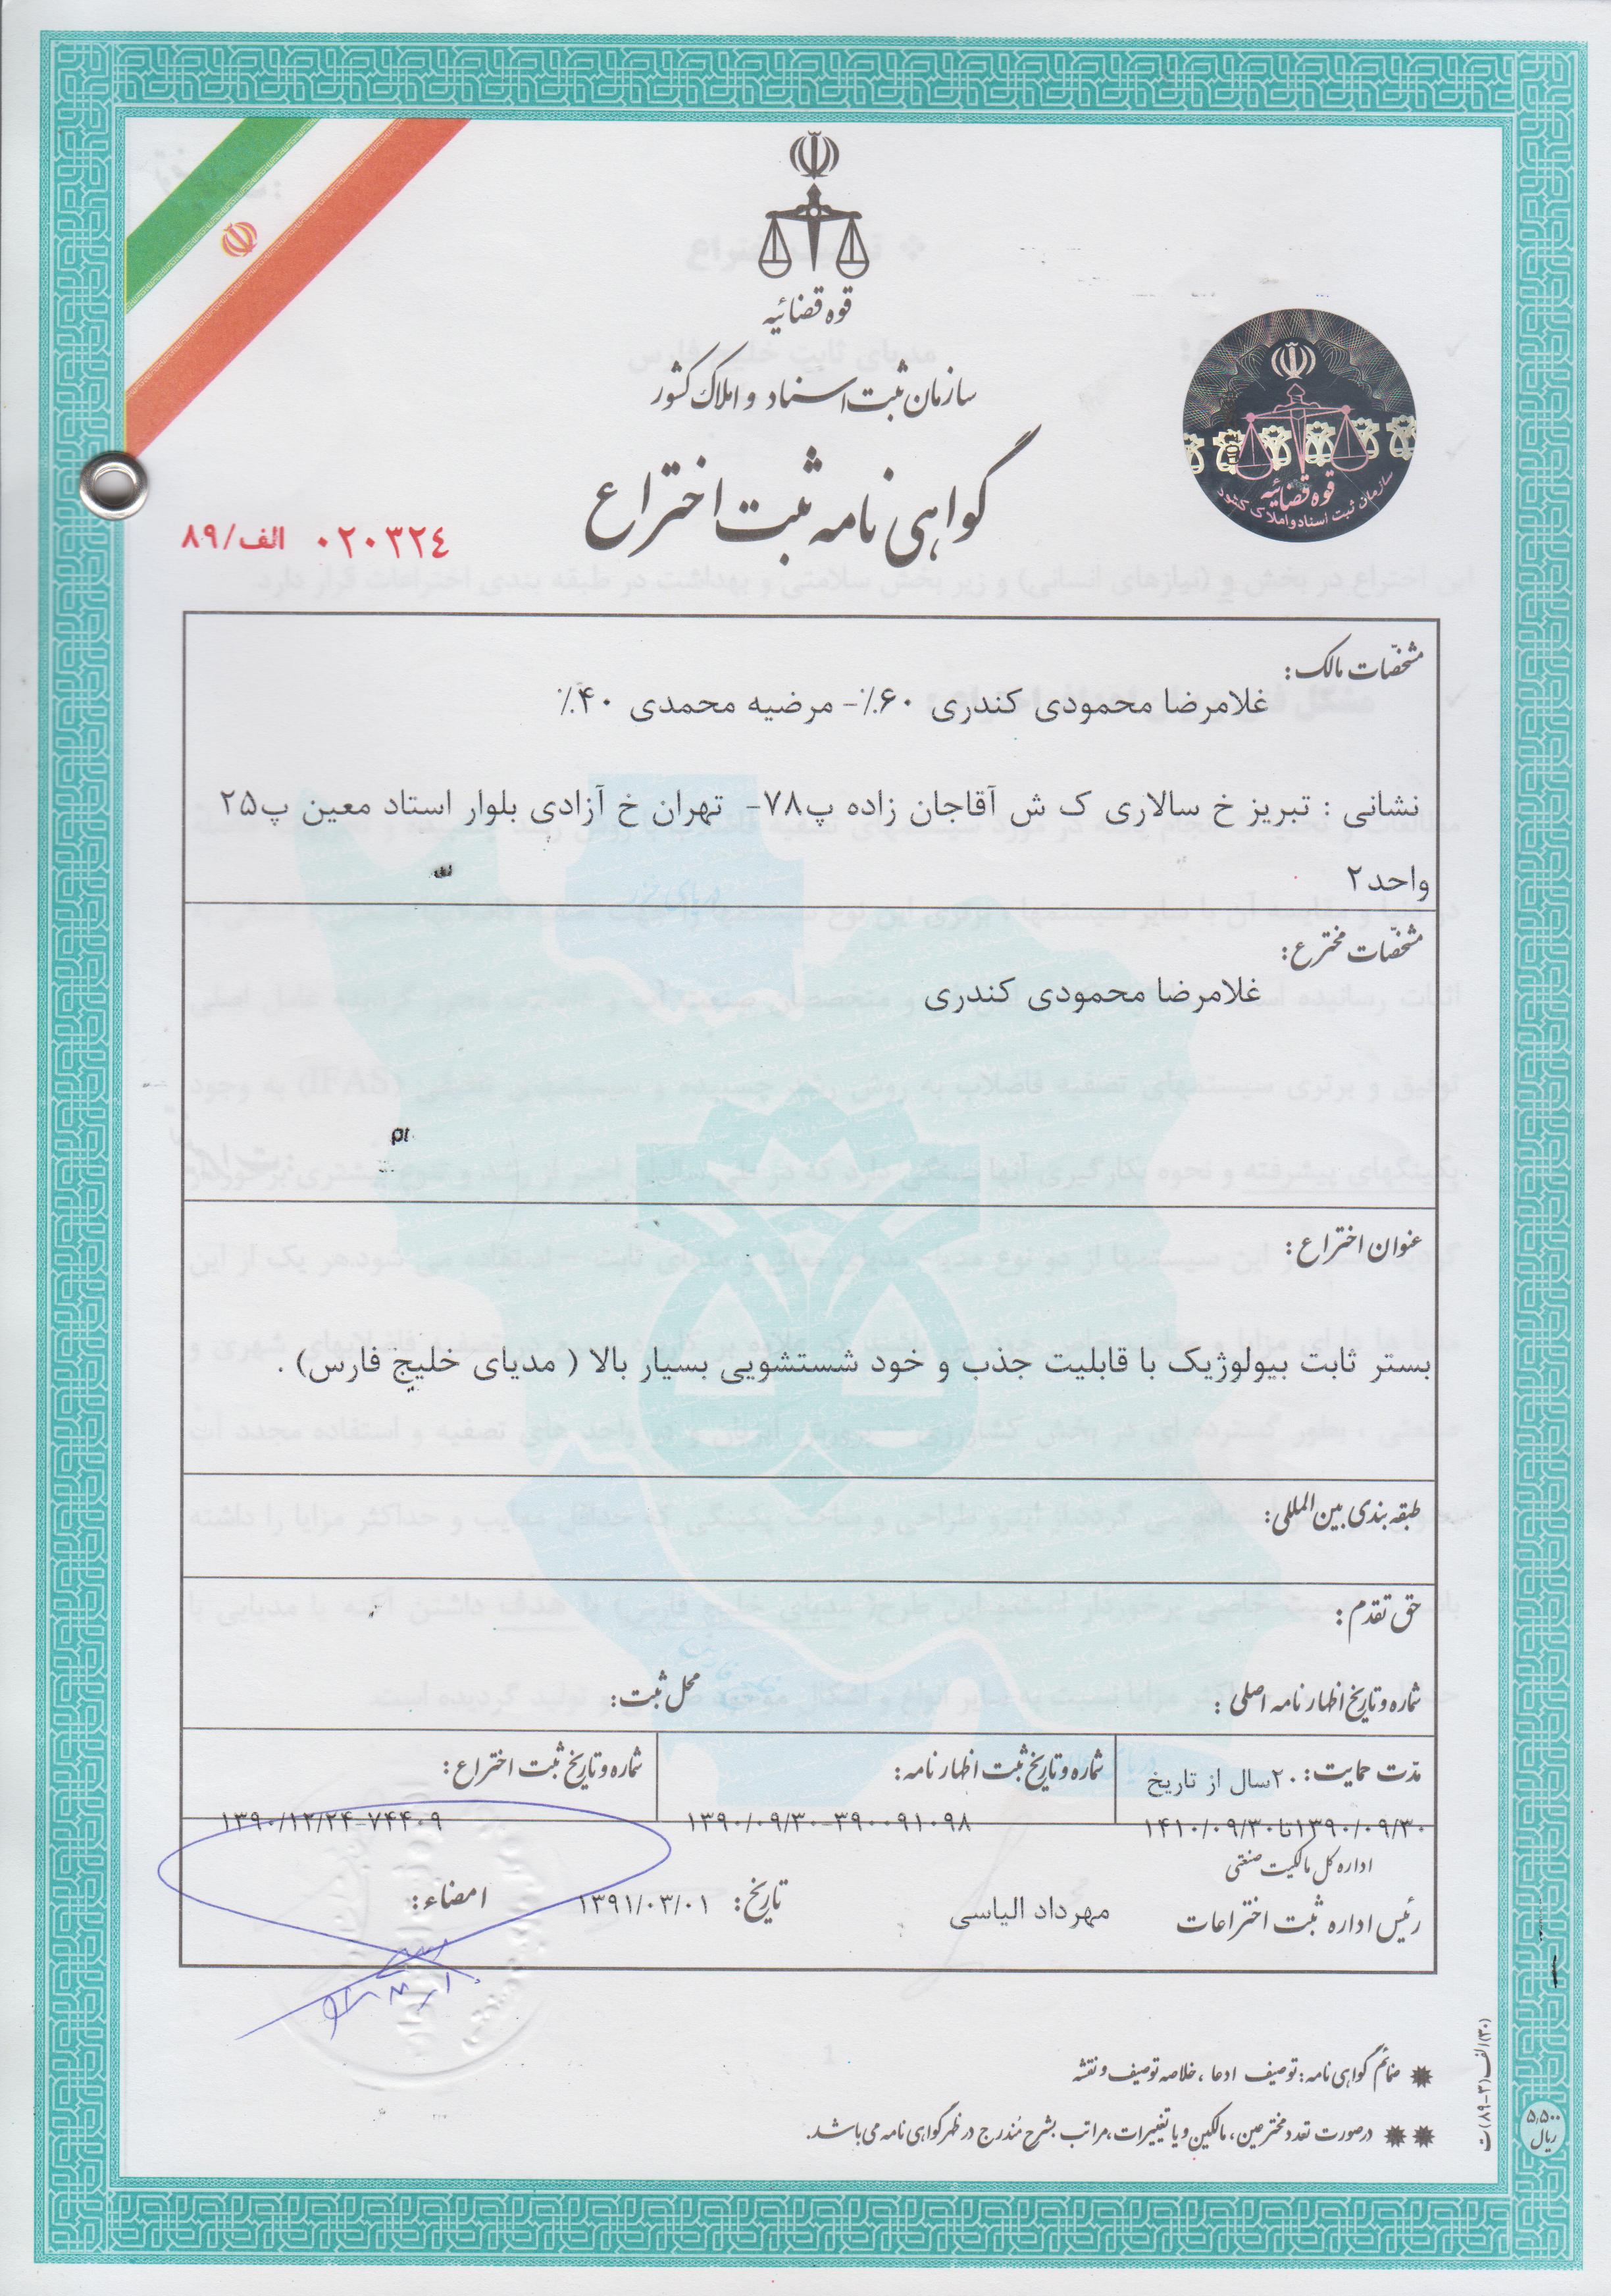 قوه قضائیه
سازمان ثبت اسناد و املاک کشور
گواهی نامه ثبت اختراع
۰۲۰۳۲۴ الف/۸۹
قوه قضائیه
سازمان ثبت اسناد و املاک کشور
مشخّصات مالک:
غلامرضا محمودی کندری ۶۰٪- مرضیه محمدی ۴۰٪
نشانی : تبریز خ سالاری ک ش آقاجان زاده پ۷۸- تهران خ آزادی بلوار استاد معین پ۲۵
واحد۲
مشخّصات مخترع:
غلامرضا محمودی کندری
عنوان اختراع:
بستر ثابت بیولوژیک با قابلیت جذب و خود شستشویی بسیار بالا ( مدیای خلیج فارس) .
طبقه بندی بین المللی:
حق تقدم:
شماره و تاریخ اظهارنامه اصلی: محل ثبت:
مدّت حمایت: ۲۰سال از تاریخ
۱۳۹۰/۰۹/۳۰تا۱۴۱۰/۰۹/۳۰
شماره و تاریخ ثبت اظهارنامه:
۱۳۹۰/۰۹/۳۰-۳۹۰۰۹۱۰۹۸
شماره و تاریخ ثبت اختراع:
۱۳۹۰/۱۲/۲۴-۷۴۴۰۹
اداره کل مالکیت صنعتی
رئیس اداره ثبت اختراعات مهرداد الیاسی تاریخ: ۱۳۹۱/۰۳/۰۱ امضاء:
ضمائم گواهی نامه: توصیف ادعا، خلاصه توصیف و نقشه
درصورت تعدد مخترعین، مالکین و یا تغییرات، مراتب بشرح مُندرج در ظهر گواهی نامه می باشد.
۵,۵۰۰
ریال